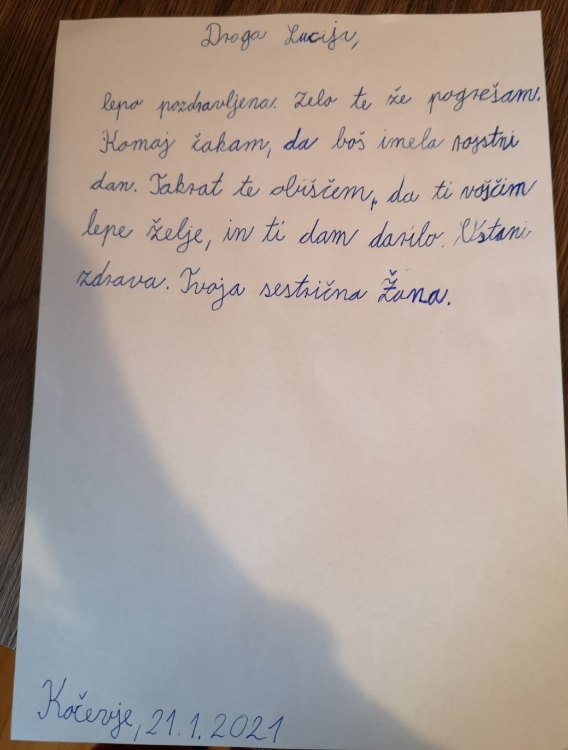 Draga Lucija,
lepo pozdravljena. Zelo te že pogrešam.
Komaj čakam, da boš imela rojstni
dan. Takrat te obiščem, da ti voščim
lepe želje, in ti dam darilo. Ostani
zdrava. Tvoja sestrična Žana.
Kočevje, 21.1.2021